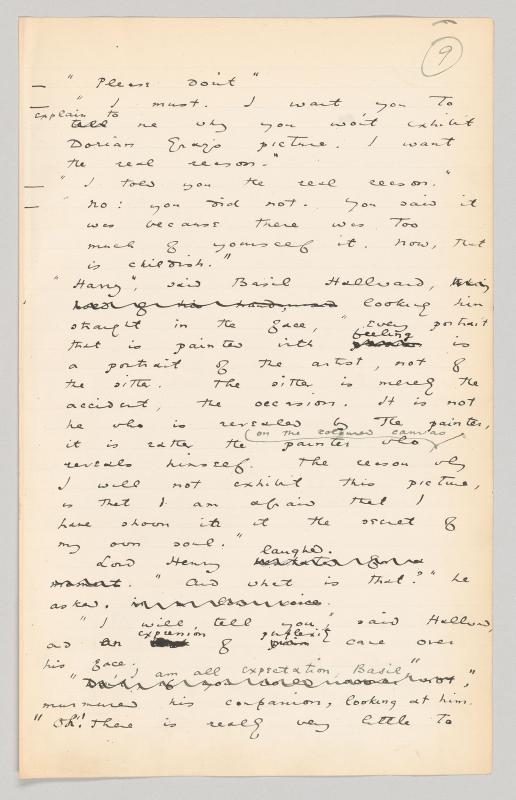 9
" Please don't "
" I must. I want you to
explain to
tell me why you won't exhibit
Dorian Gray's picture. I want
the real reason."
" I told you the real reason."
" No: you did not. You said it
was because there was too
much of yourself in it. Now, that
is childish."
" Harry", said Basil Hallward, taking
hold of his hand, and looking him
straight in the face, " every portrait
feeling
that is painted with is
a portrait of the artist, not of
the sitter. The sitter is merely the
accident, the occasion. It is not
he who is revealed by the painter,
on the coloured canvas
it is rather the painter who
reveals himself. The reason why
I will not exhibit this picture,
is that I am afraid that I
have shown in it the secret of
my own soul."
laughed.
Lord Henry hesitated for a
moment. " And what is that?" he
asked. in a voice.
" I will tell you," said Hallward,
expression perplexity
and an of pain came over
his face.
" I am all expectation, Basil "
murmured his companion, looking at him.
" Oh! There is really very little to